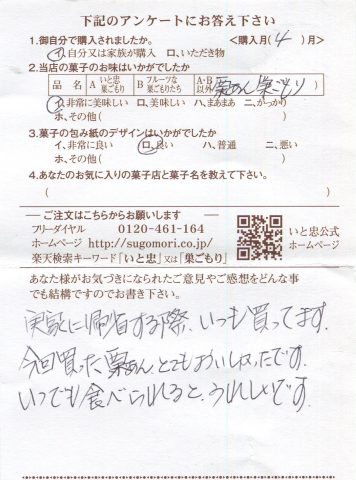 下記のアンケートにお答え下さい
1.御自分で購入されましたか。 <購入月(4)月>
イ、自分又は家族が購入 ロ、いただき物
2.当店の菓子のお味はいかがでしたか
品 名 A いと忠巣ごもり B フルーツな巣ごもりたち A・B以外(栗あん巣ごもり)
イ、非常に美味しい ロ、美味しい ハ、まあまあ ニ、がっかり
ホ、その他( )
3.菓子の包み紙のデザインはいかがでしたか
イ、非常に良い ロ、良い ハ、普通 ニ、悪い
ホ、その他( )
4.あなたのお気に入りの菓子店と菓子名を教えて下さい。
( )
ご注文はこちらからお願いします
フリーダイヤル 0120-461-164
ホームページ http://sugomori.co.jp/
楽天検索キーワード「いと忠」又は「巣ごもり」
いと忠公式
ホームページ
あなた様がお気づきになられたご意見やご感想をどんな事
でも結構ですのでお書き下さい。
実家に帰省する際、いつも買ってます。
今回買った栗あんとてもおいしかったです。
いつでも食べられると、うれしいです。